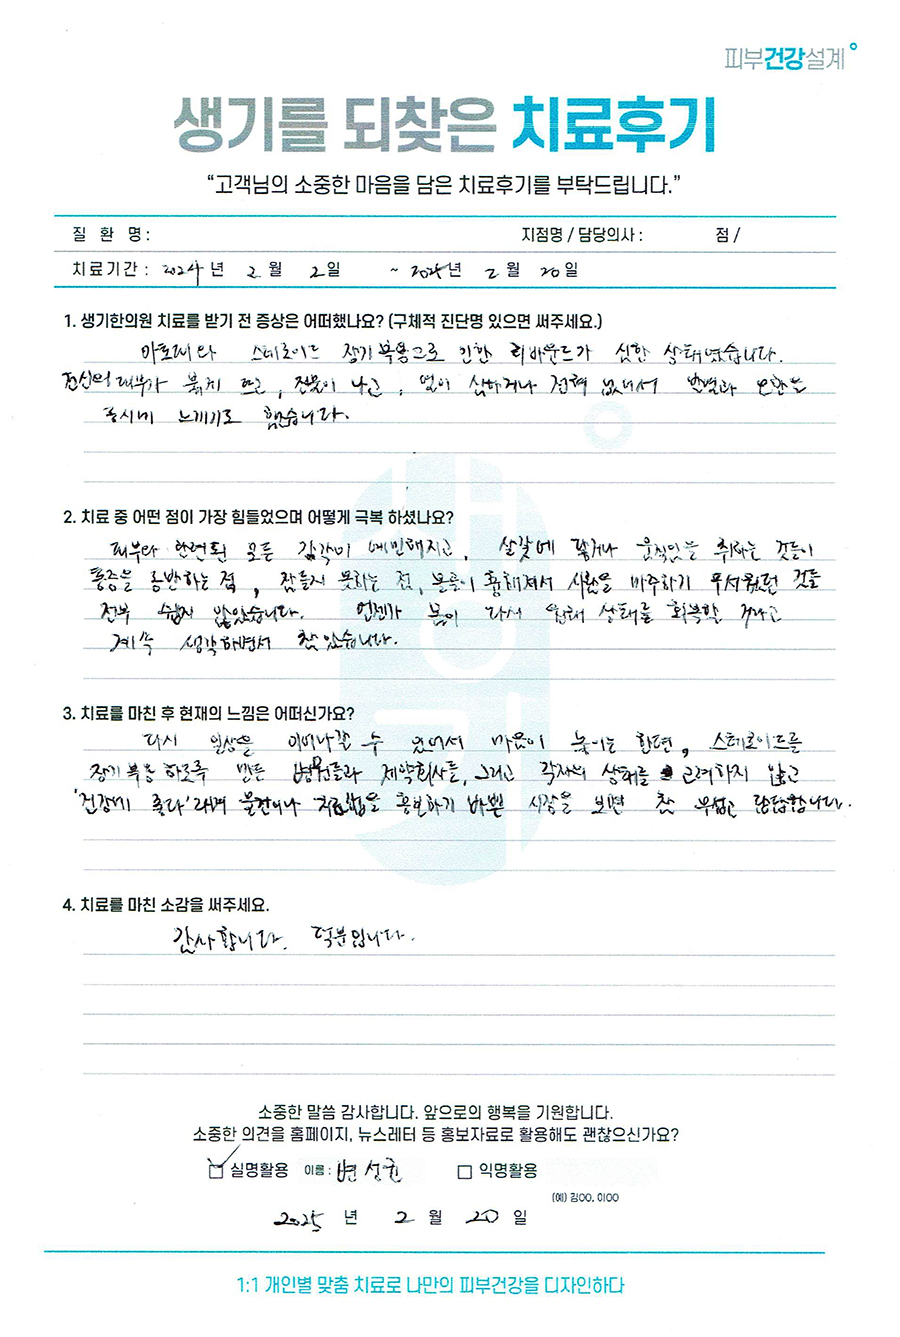 피부건강설계
생기를 되찾은 치료후기
“고객님의 소중한 마음을 담은 치료후기를 부탁드립니다.”
질 환 명 : 지점명 / 담당의사 : 점 /
치료기간 : 2024 년 2 월 2 일 ~ 2025 년 2 월 20 일
1. 생기한의원 치료를 받기 전 증상은 어떠했나요? (구체적 진단명 있으면 써주세요.)
아토피와 스테로이드 장기 복용으로 인한 리바운드가 심한 상태였습니다.
전신의 피부가 붉게 뜨고, 진물이 나고, 열이 심하거나 전혀 없어서 발열과 오한을
동시에 느끼기도 했습니다.
2. 치료 중 어떤 점이 가장 힘들었으며 어떻게 극복 하셨나요?
피부와 관련된 모든 감각이 예민해지고, 살갗에 닿거나 움직임을 취하는 것들이
통증을 동반하는 점, 잠들지 못하는 점, 몰골이 흉해져서 사람을 마주하기 무서웠던 것들
전부 쉽지 않았습니다. 언젠가 몸이 다시 원래 상태를 회복할 거라고
계속 생각하면서 참았습니다.
3. 치료를 마친 후 현재의 느낌은 어떠신가요?
다시 일상을 이어나갈 수 있어서 마음이 놓이는 한편, 스테로이드를
장기 복용 하도록 만든 병원들과 제약회사들, 그리고 각자의 상태를 고려하지 않고
'건강에 좋다' 라며 물건이나 처방법을 홍보하기 바쁜 시장을 보면 참 무섭고 답답합니다.
4. 치료를 마친 소감을 써주세요.
감사합니다. 덕분입니다.
소중한 말씀 감사합니다. 앞으로의 행복을 기원합니다.
소중한 의견을 홈페이지, 뉴스레터 등 홍보자료로 활용해도 괜찮으신가요?
실명활용 이름 : 변성균 익명활용
(예) 김OO, 이OO
2025 년 2 월 20 일
1:1 개인별 맞춤 치료로 나만의 피부건강을 디자인하다